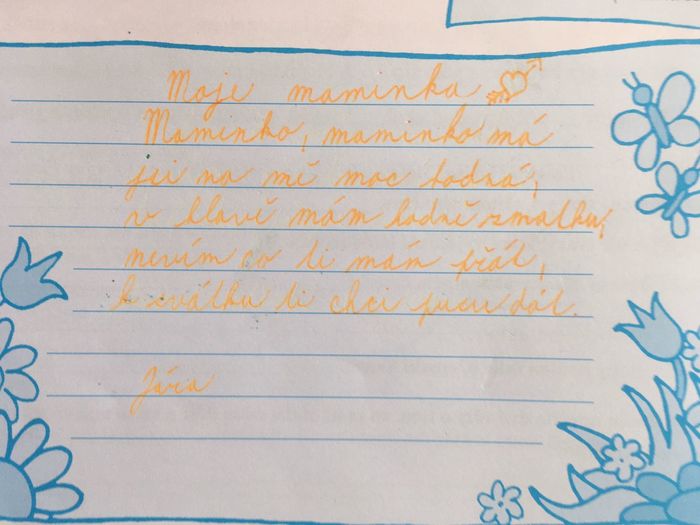 Moje maminka
Maminko, maminko má
jsi na mě moc hodná,
v hlavě mám hodně zmatku,
nevím co ti mám přát,
k svátku ti chci pusu dát.
Jára